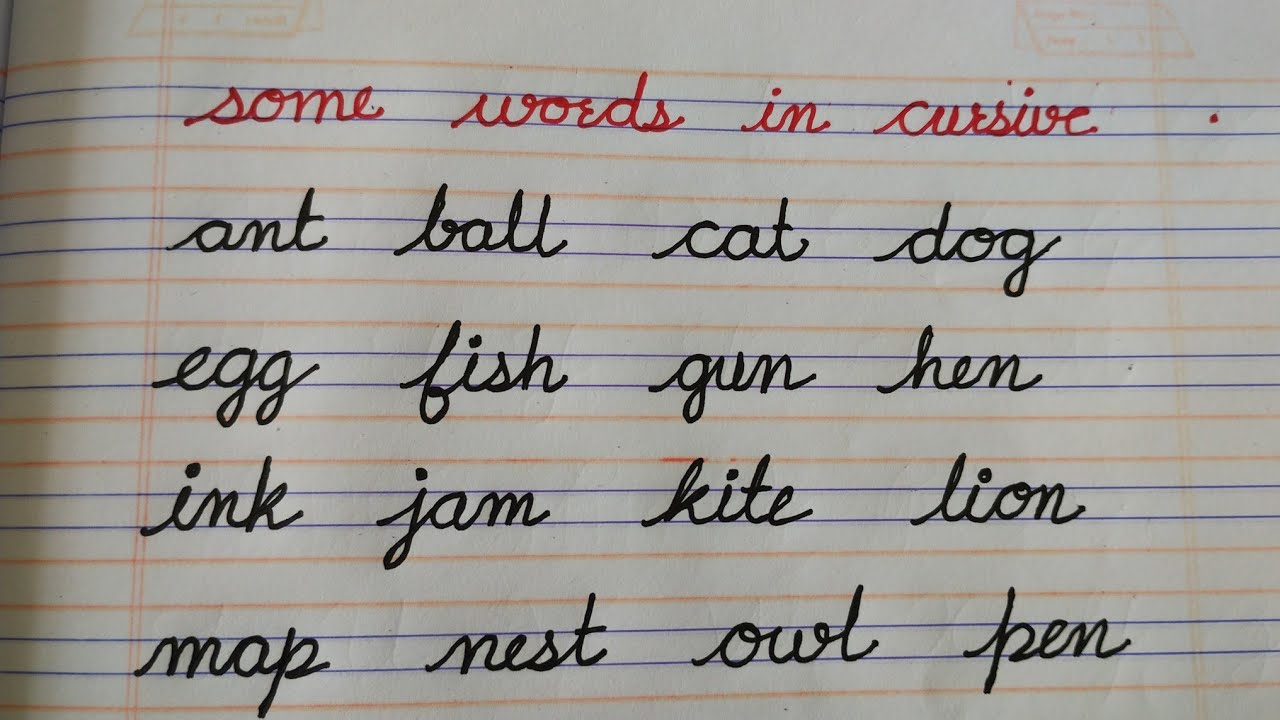 some words in cursive .
ant ball cat dog
egg fish gun hen
ink jam kite lion
map nest owl pen